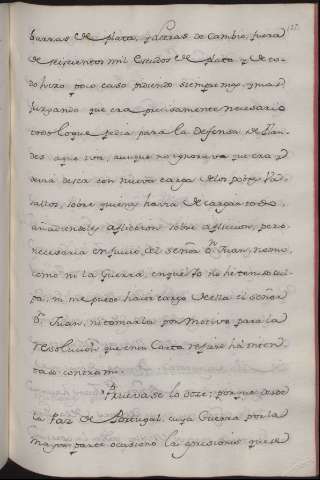 127
barras de plata, y letras de Cambio, fuera
de seiscientos mil Escudos de plata y de to-
do hizo poco caso pidiendo siempre mas, y mas
juzgando que era precisamente necesario
todo lo que pedia para la defensa de Flan-
des aquel vra, aunque no ignorava que era y
devia de ser con nueva carga de los pobres Va-
sallos, sobre quienes havia de cargar todo,
añadiendoles afliccion sobre afliccion, pero
necesaria en juicio del señor Dn. Juan, no mo,
como ni la Guerra, en que Yo no he tenido cul-
pa, ni me puede hacer cargo de ella el señor
Dn. Juan, ni tomarla por Motivo para la
resolucion que en su Carta refiere há inten-
tado contra mi.
Pruevase lo dicho; porque desde
la Paz de Portugal, cuya Guerra por la
mayor parte ocasionó las opresiones que se